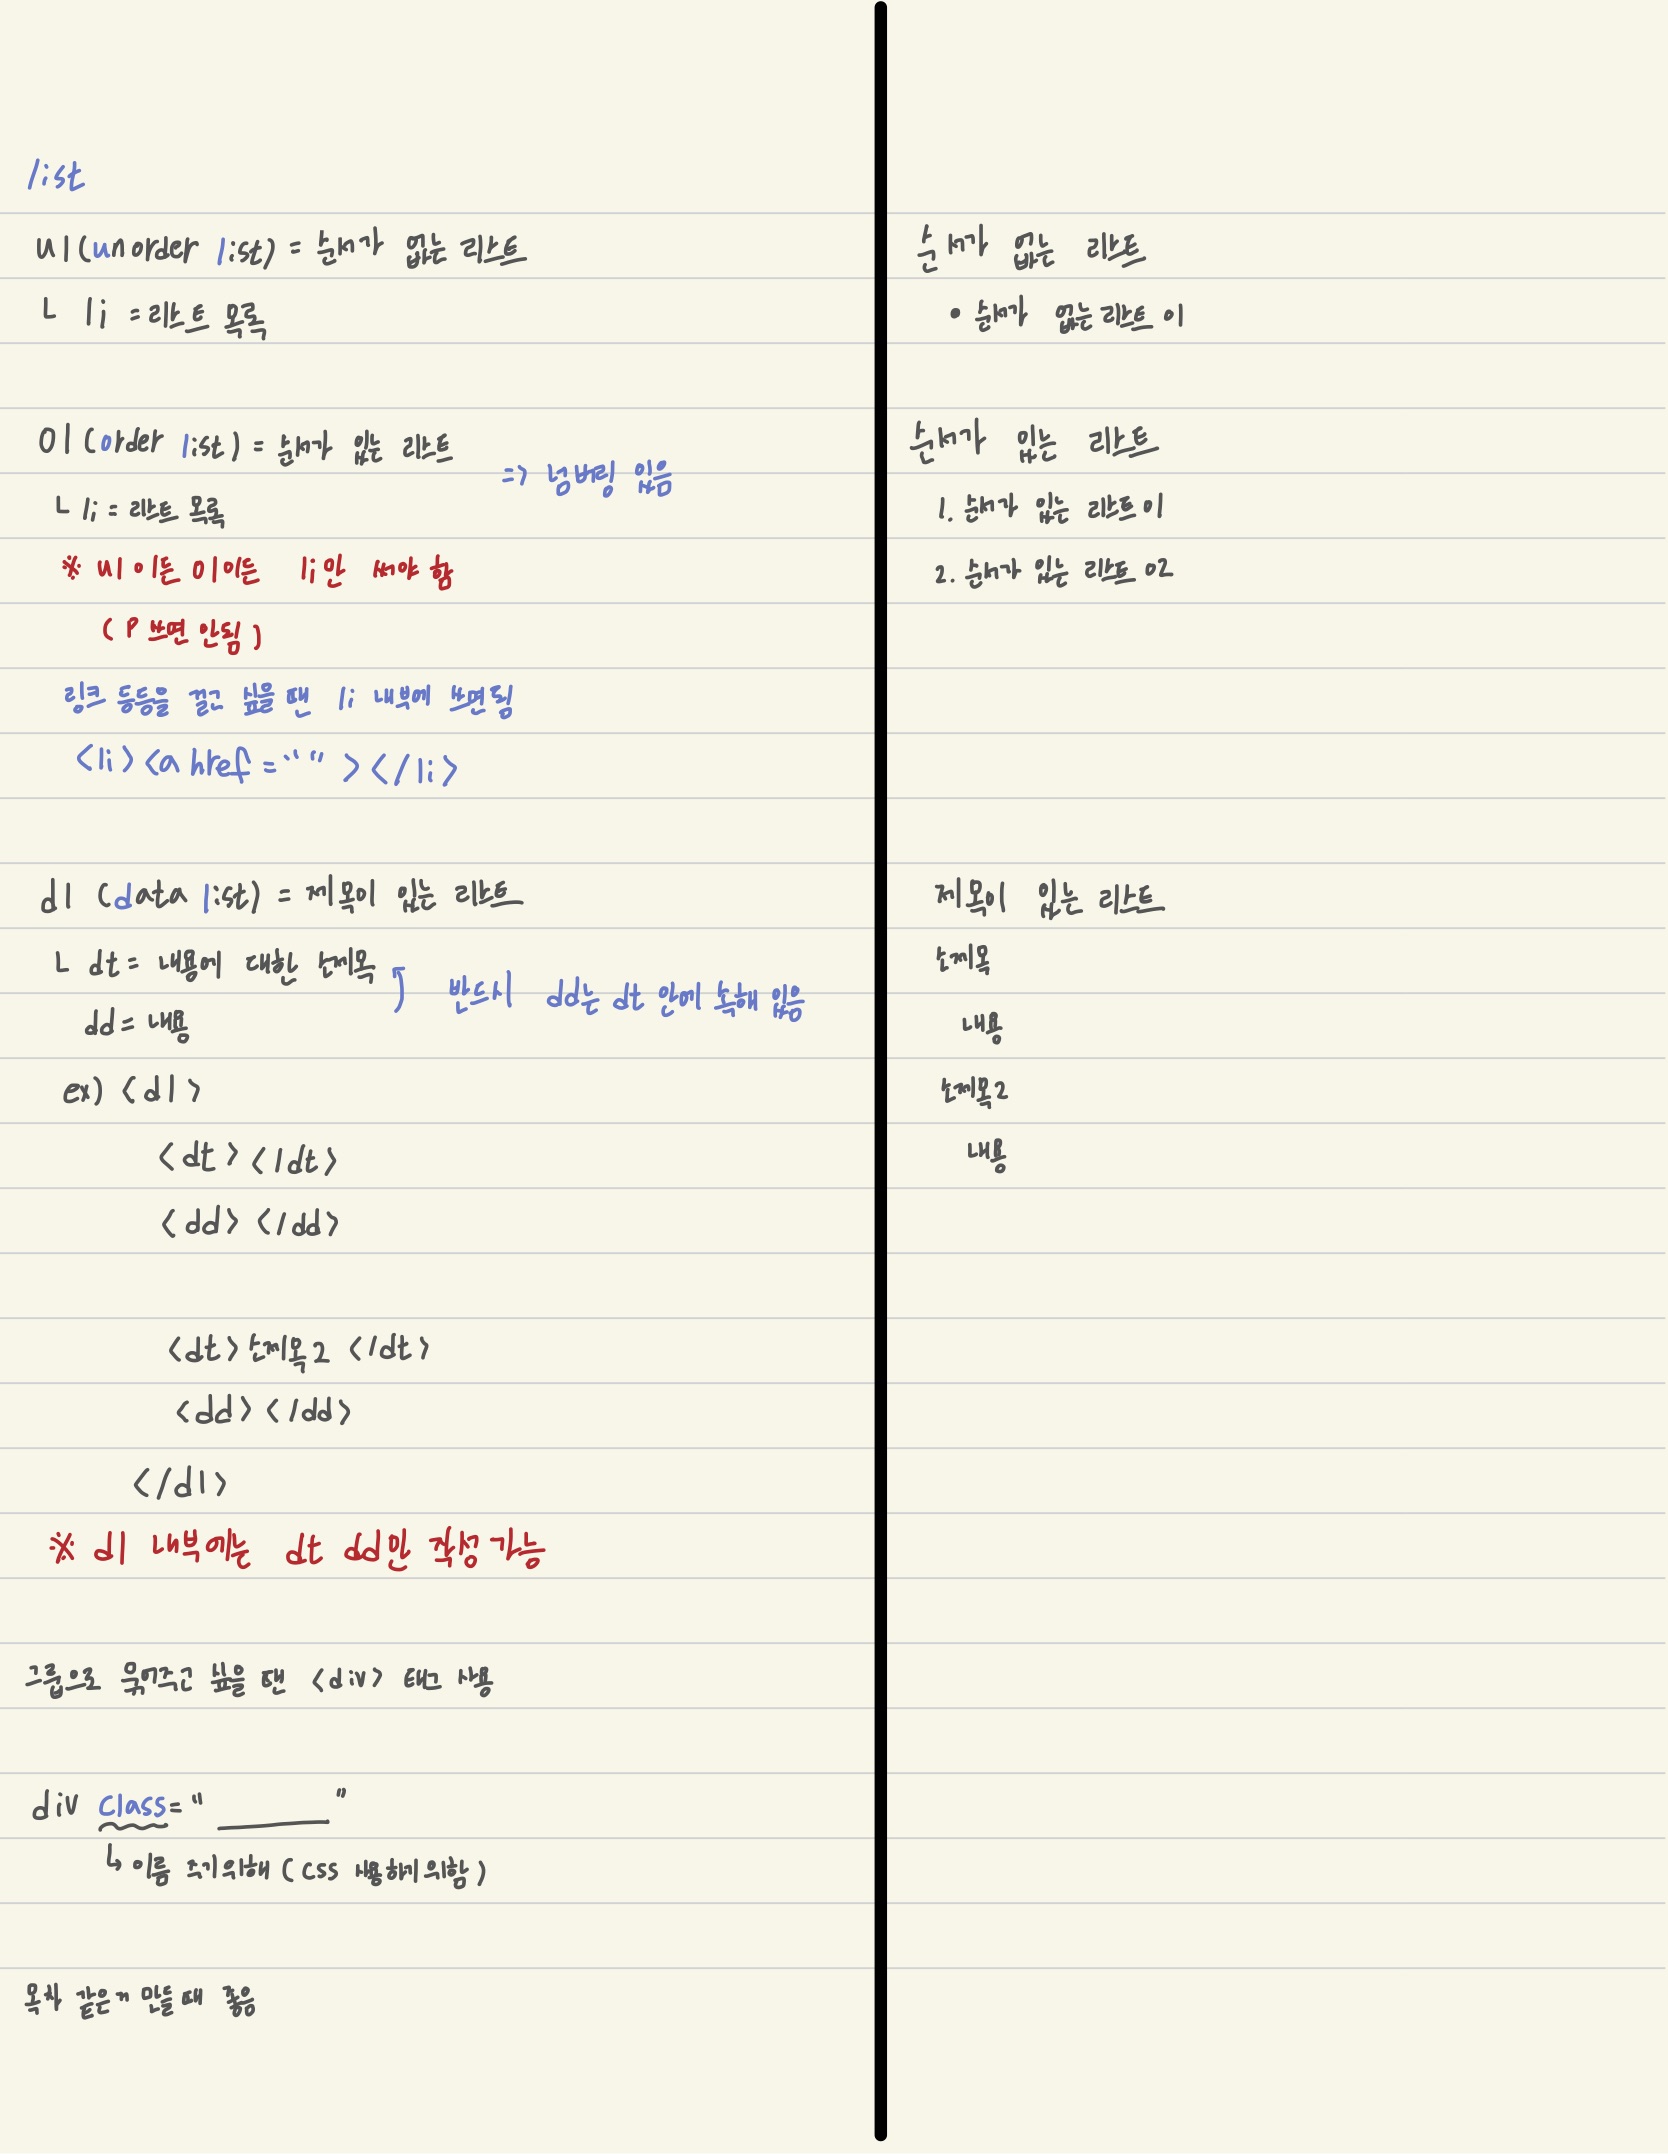 list
ul(unorder list) = 순서가 없는 리스트
ㄴ li = 리스트 목록
ol(order list) = 순서가 있는 리스트
=> 넘버링 있음
ㄴ li = 리스트 목록
※ ul이든 ol이든 li만 써야 함
(P 쓰면 안됨)
링크 등등을 걸고 싶을 땐 li 내부에 쓰면 됨
<li><a href="" ></li>
dl (data list) = 제목이 있는 리스트
ㄴ dt = 내용에 대한 소제목
반드시 dd는 dt 안에 속해 있음
dd = 내용
ex) <dl>
<dt></dt>
<dd></dd>
<dt>소제목2 </dt>
<dd></dd>
</dl>
※ dl 내부에는 dt dd만 작성 가능
그룹으로 묶어주고 싶을 땐 <div> 태그 사용
div class = " "
↳ 이름 주기 위해 (css 사용하기 위함)
목차 같은거 만들 때 좋음
순서가 없는 리스트
• 순서가 없는 리스트 01
순서가 있는 리스트
1. 순서가 있는 리스트 01
2. 순서가 있는 리스트 02
제목이 있는 리스트
소제목
내용
소제목2
내용